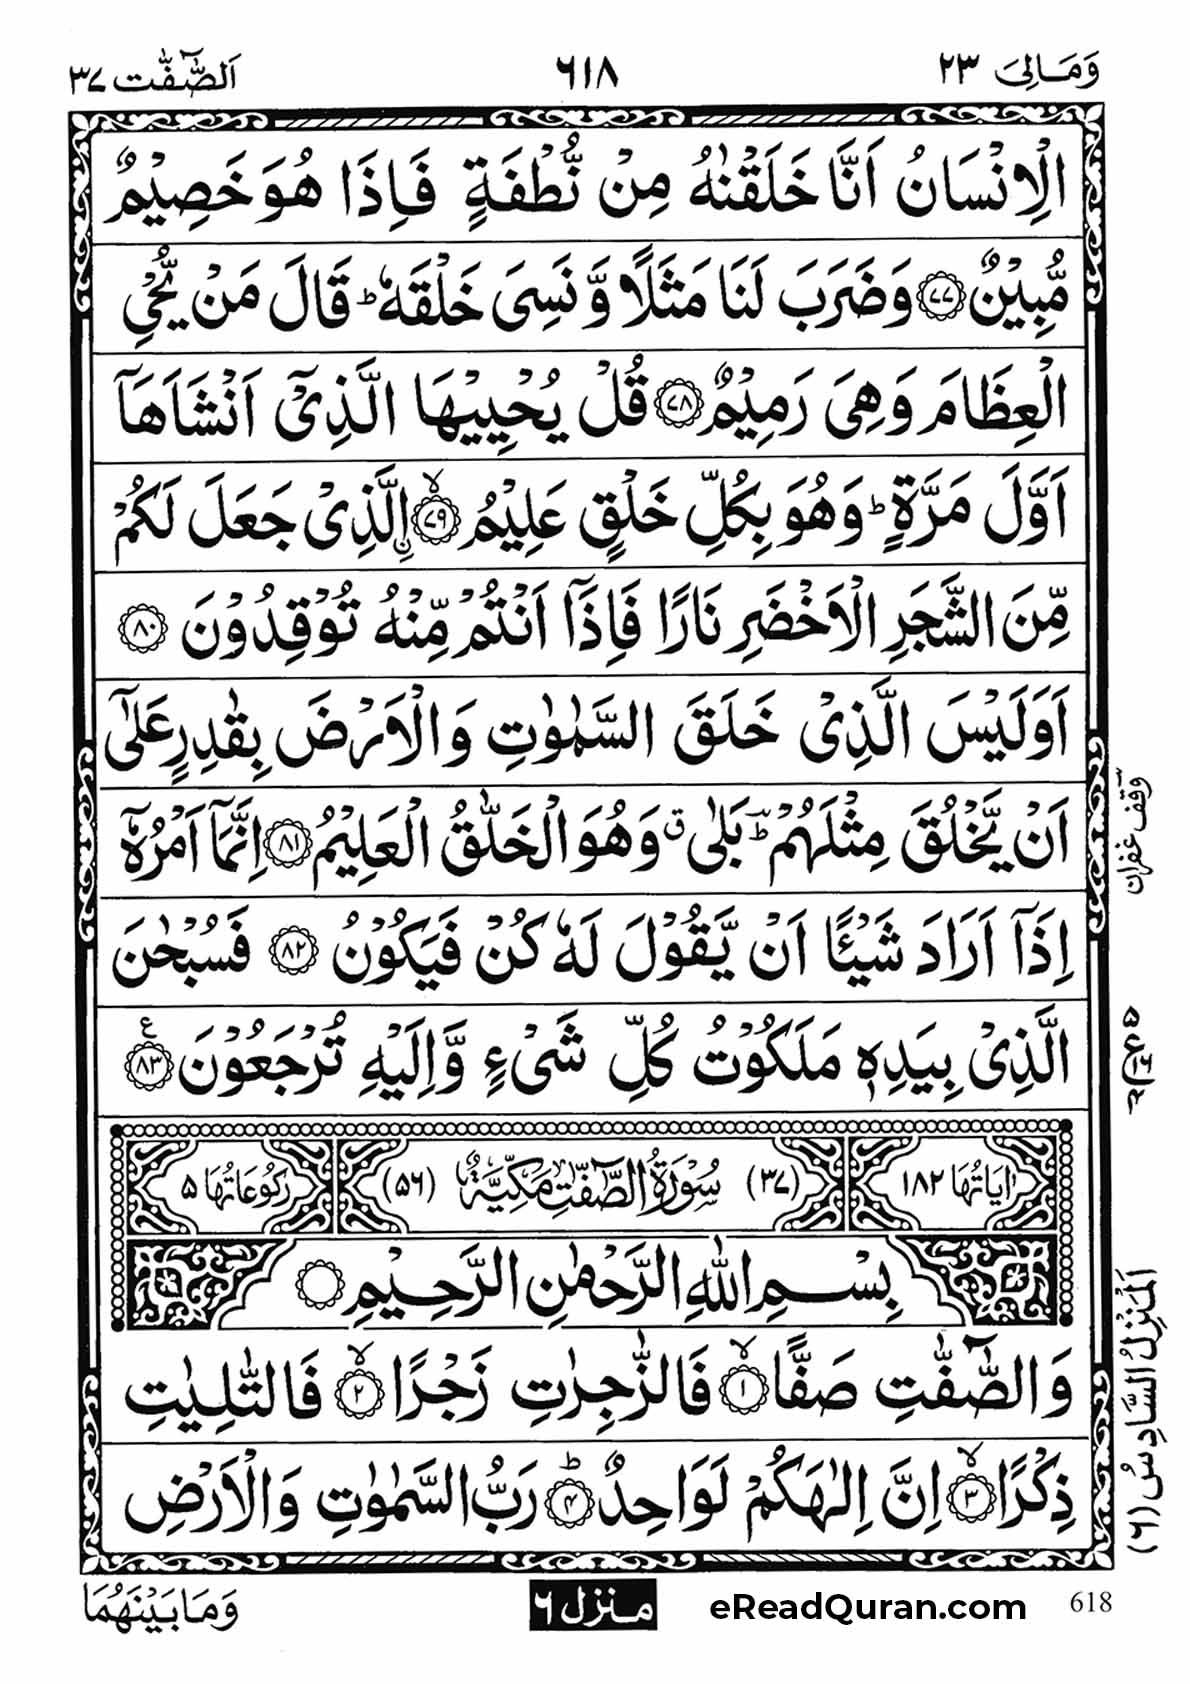 وَمَالِیَ ٢٣
٦١٨
اَلصّٰٓفّٰت ٣٧
الْاِنْسَانُ اَنَّا خَلَقْنٰهُ مِنْ نُّطْفَةٍ فَاِذَا هُوَ خَصِیْمٌ
مُّبِیْنٌ ﴿٧٧﴾ وَضَرَبَ لَنَا مَثَلًا وَّنَسِیَ خَلْقَهٗ ؕ قَالَ مَنْ یُّحْیِ
الْعِظَامَ وَهِیَ رَمِیْمٌ ﴿٧٨﴾ قُلْ یُحْیِیْهَا الَّذِیْۤ اَنْشَاَهَاۤ
اَوَّلَ مَرَّةٍ ؕ وَهُوَ بِكُلِّ خَلْقٍ عَلِیْمُ ﴿٧٩﴾ۙ اِ۟لَّذِیْ جَعَلَ لَكُمْ
مِّنَ الشَّجَرِ الْاَخْضَرِ نَارًا فَاِذَاۤ اَنْتُمْ مِّنْهُ تُوْقِدُوْنَ ﴿٨٠﴾
اَوَلَیْسَ الَّذِیْ خَلَقَ السَّمٰوٰتِ وَالْاَرْضَ بِقٰدِرٍ عَلٰۤی
اَنْ یَّخْلُقَ مِثْلَهُمْ ؕ بَلٰی ۗ وَهُوَ الْخَلّٰقُ الْعَلِیْمُ ﴿٨١﴾ اِنَّمَاۤ اَمْرُهٗۤ
اِذَاۤ اَرَادَ شَیْـًٔا اَنْ یَّقُوْلَ لَهٗ كُنْ فَیَكُوْنُ ﴿٨٢﴾ فَسُبْحٰنَ
الَّذِیْ بِیَدِهٖ مَلَكُوْتُ كُلِّ شَیْءٍ وَّاِلَیْهِ تُرْجَعُوْنَ ﴿٨٣﴾ ع
اٰیَاتُهَا ١٨٢
(٣٧) سُوْرَةُ الصّٰٓفّٰتِ مَكِّیَّةٌ (٥٦)
رُكُوْعَاتُهَا ٥
بِسْمِ اللّٰهِ الرَّحْمٰنِ الرَّحِیْمِ
وَالصّٰٓفّٰتِ صَفًّا ﴿١﴾ۙ فَالزّٰجِرٰتِ زَجْرًا ﴿٢﴾ۙ فَالتّٰلِیٰتِ
ذِكْرًا ﴿٣﴾ۙ اِنَّ اِلٰهَكُمْ لَوَاحِدٌ ﴿٤﴾ؕ رَبُّ السَّمٰوٰتِ وَالْاَرْضِ
وقف غفران
اَلْمَنْزِلُ السَّادِسُ (٦)
وَمَا بَیْنَهُمَا
منزل ٦
eReadQuran.com
618